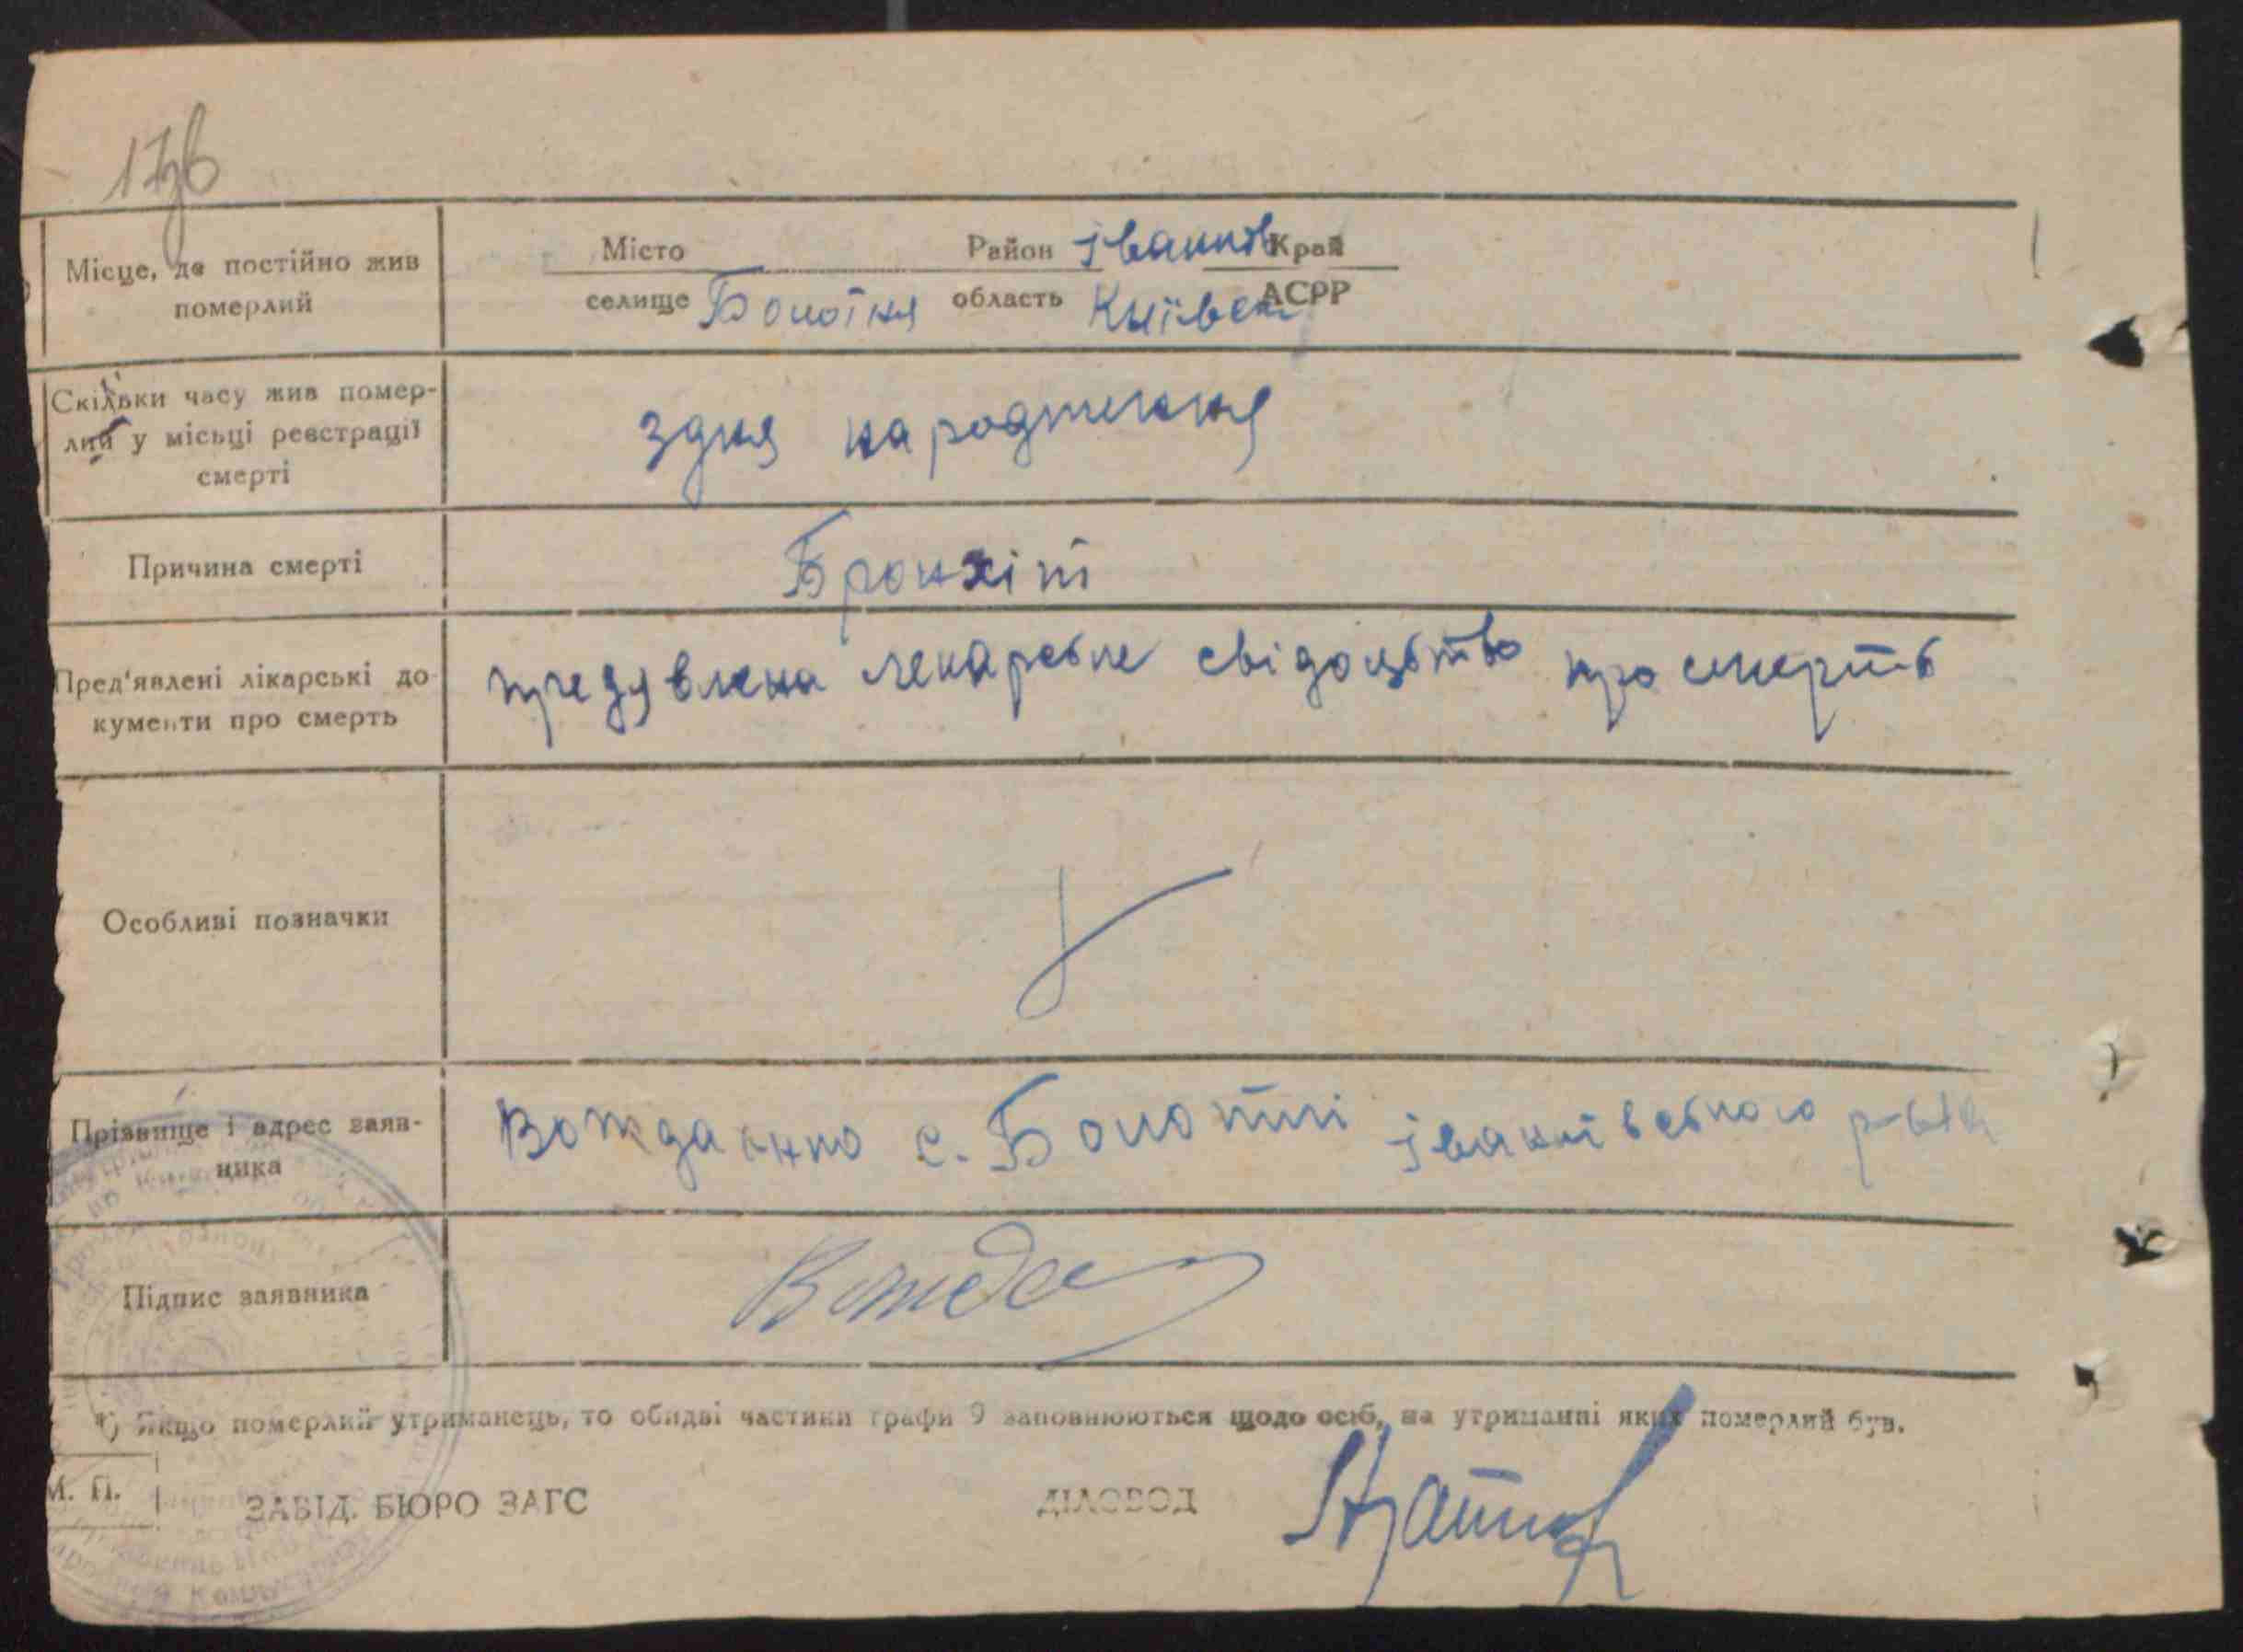 17зв
Місце, де постійно жив
померлий
Місто Район Іванків Край
селище Болотня область Київськ АСРР
Скільки часу жив помер-
лий у місьці реєстрації
смерті
здня народження
Причина смерті
Бронхіт
Пред'явлені лікарські до-
кументи про смерть
предявлена лекарське свідоцьтво про смерть
Особливі позначки
Прізвище і адрес заяв-
ника
с. Болотні Іванківського р-на
Підпис заявника
*) Якщо померлий утриманець, то обидві частини графи 9 заповнюються щодо осіб, на утриманні яких померлий був.
М. П.
ЗАВІД. БЮРО ЗАГС ДІЛОВОД